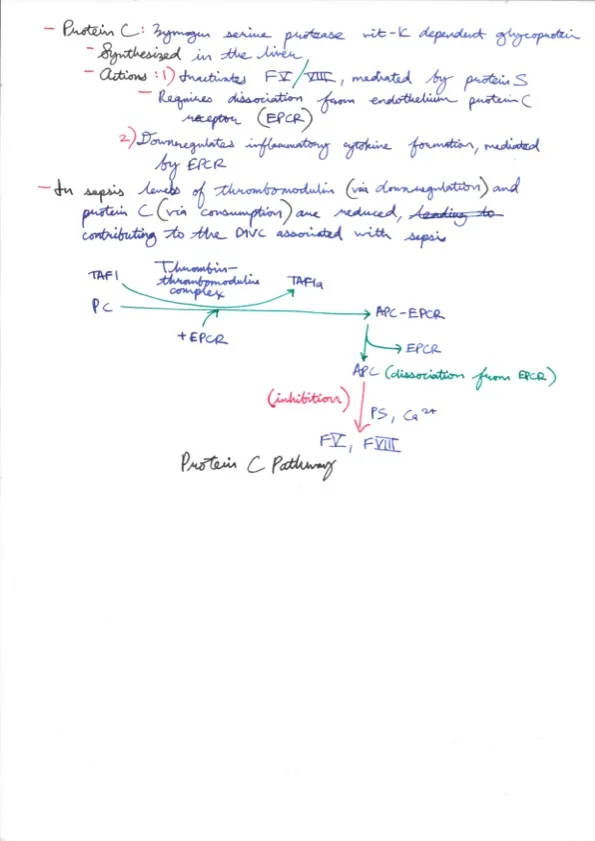 - Protein C: Zymogen serine protease vit-K dependent glycoprotein
- Synthesized in the liver
- Actions: 1) Inactivates FV/VIII, mediated by protein S
- Requires dissociation from endothelium protein C
receptor (EPCR)
2) Downregulates inflammatory cytokine formation, mediated
by EPCR
- In sepsis levels of thrombomodulin (via downregulation) and
protein C (via consumption) are reduced, leading to
contributing to the DIVC associated with sepsis
Thrombin-
TAFI thrombomodulin TAFIa
complex
PC APC-EPCR
+EPCR
EPCR
APC (dissociation from EPCR)
(inhibition)
PS, Ca2+
FV, FVIII
Protein C Pathway